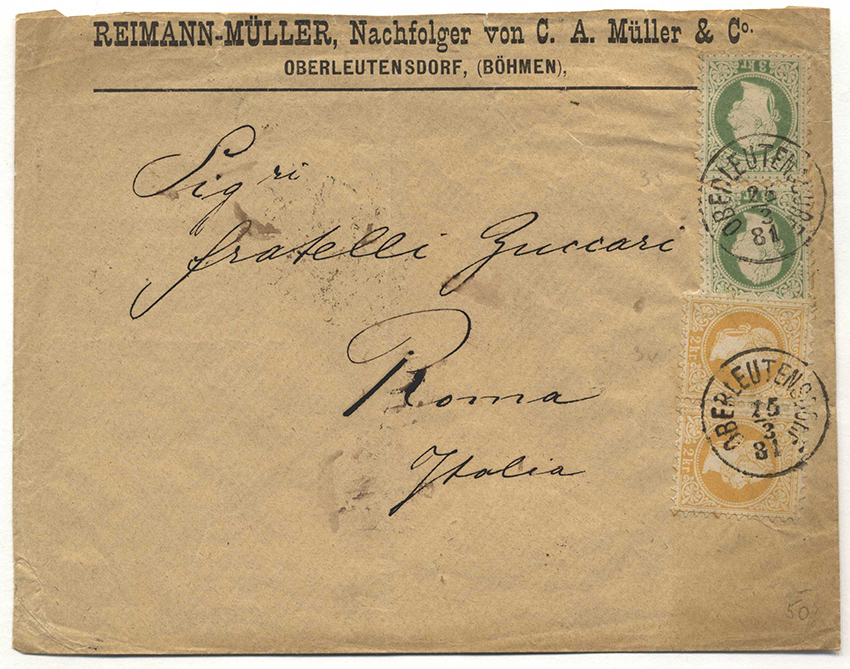 REIMANN-MÜLLER, Nachfolger von C. A. Müller & Co.
OBERLEUTENSDORF, (BÖHMEN),
Sigri
fratelli Zuccari
Roma
Italia
3 kr
OBERLEUTENSDORF
25
3
81
2 kr.
OBERLEUTENSDORF
15
3
81
2 kr.
50